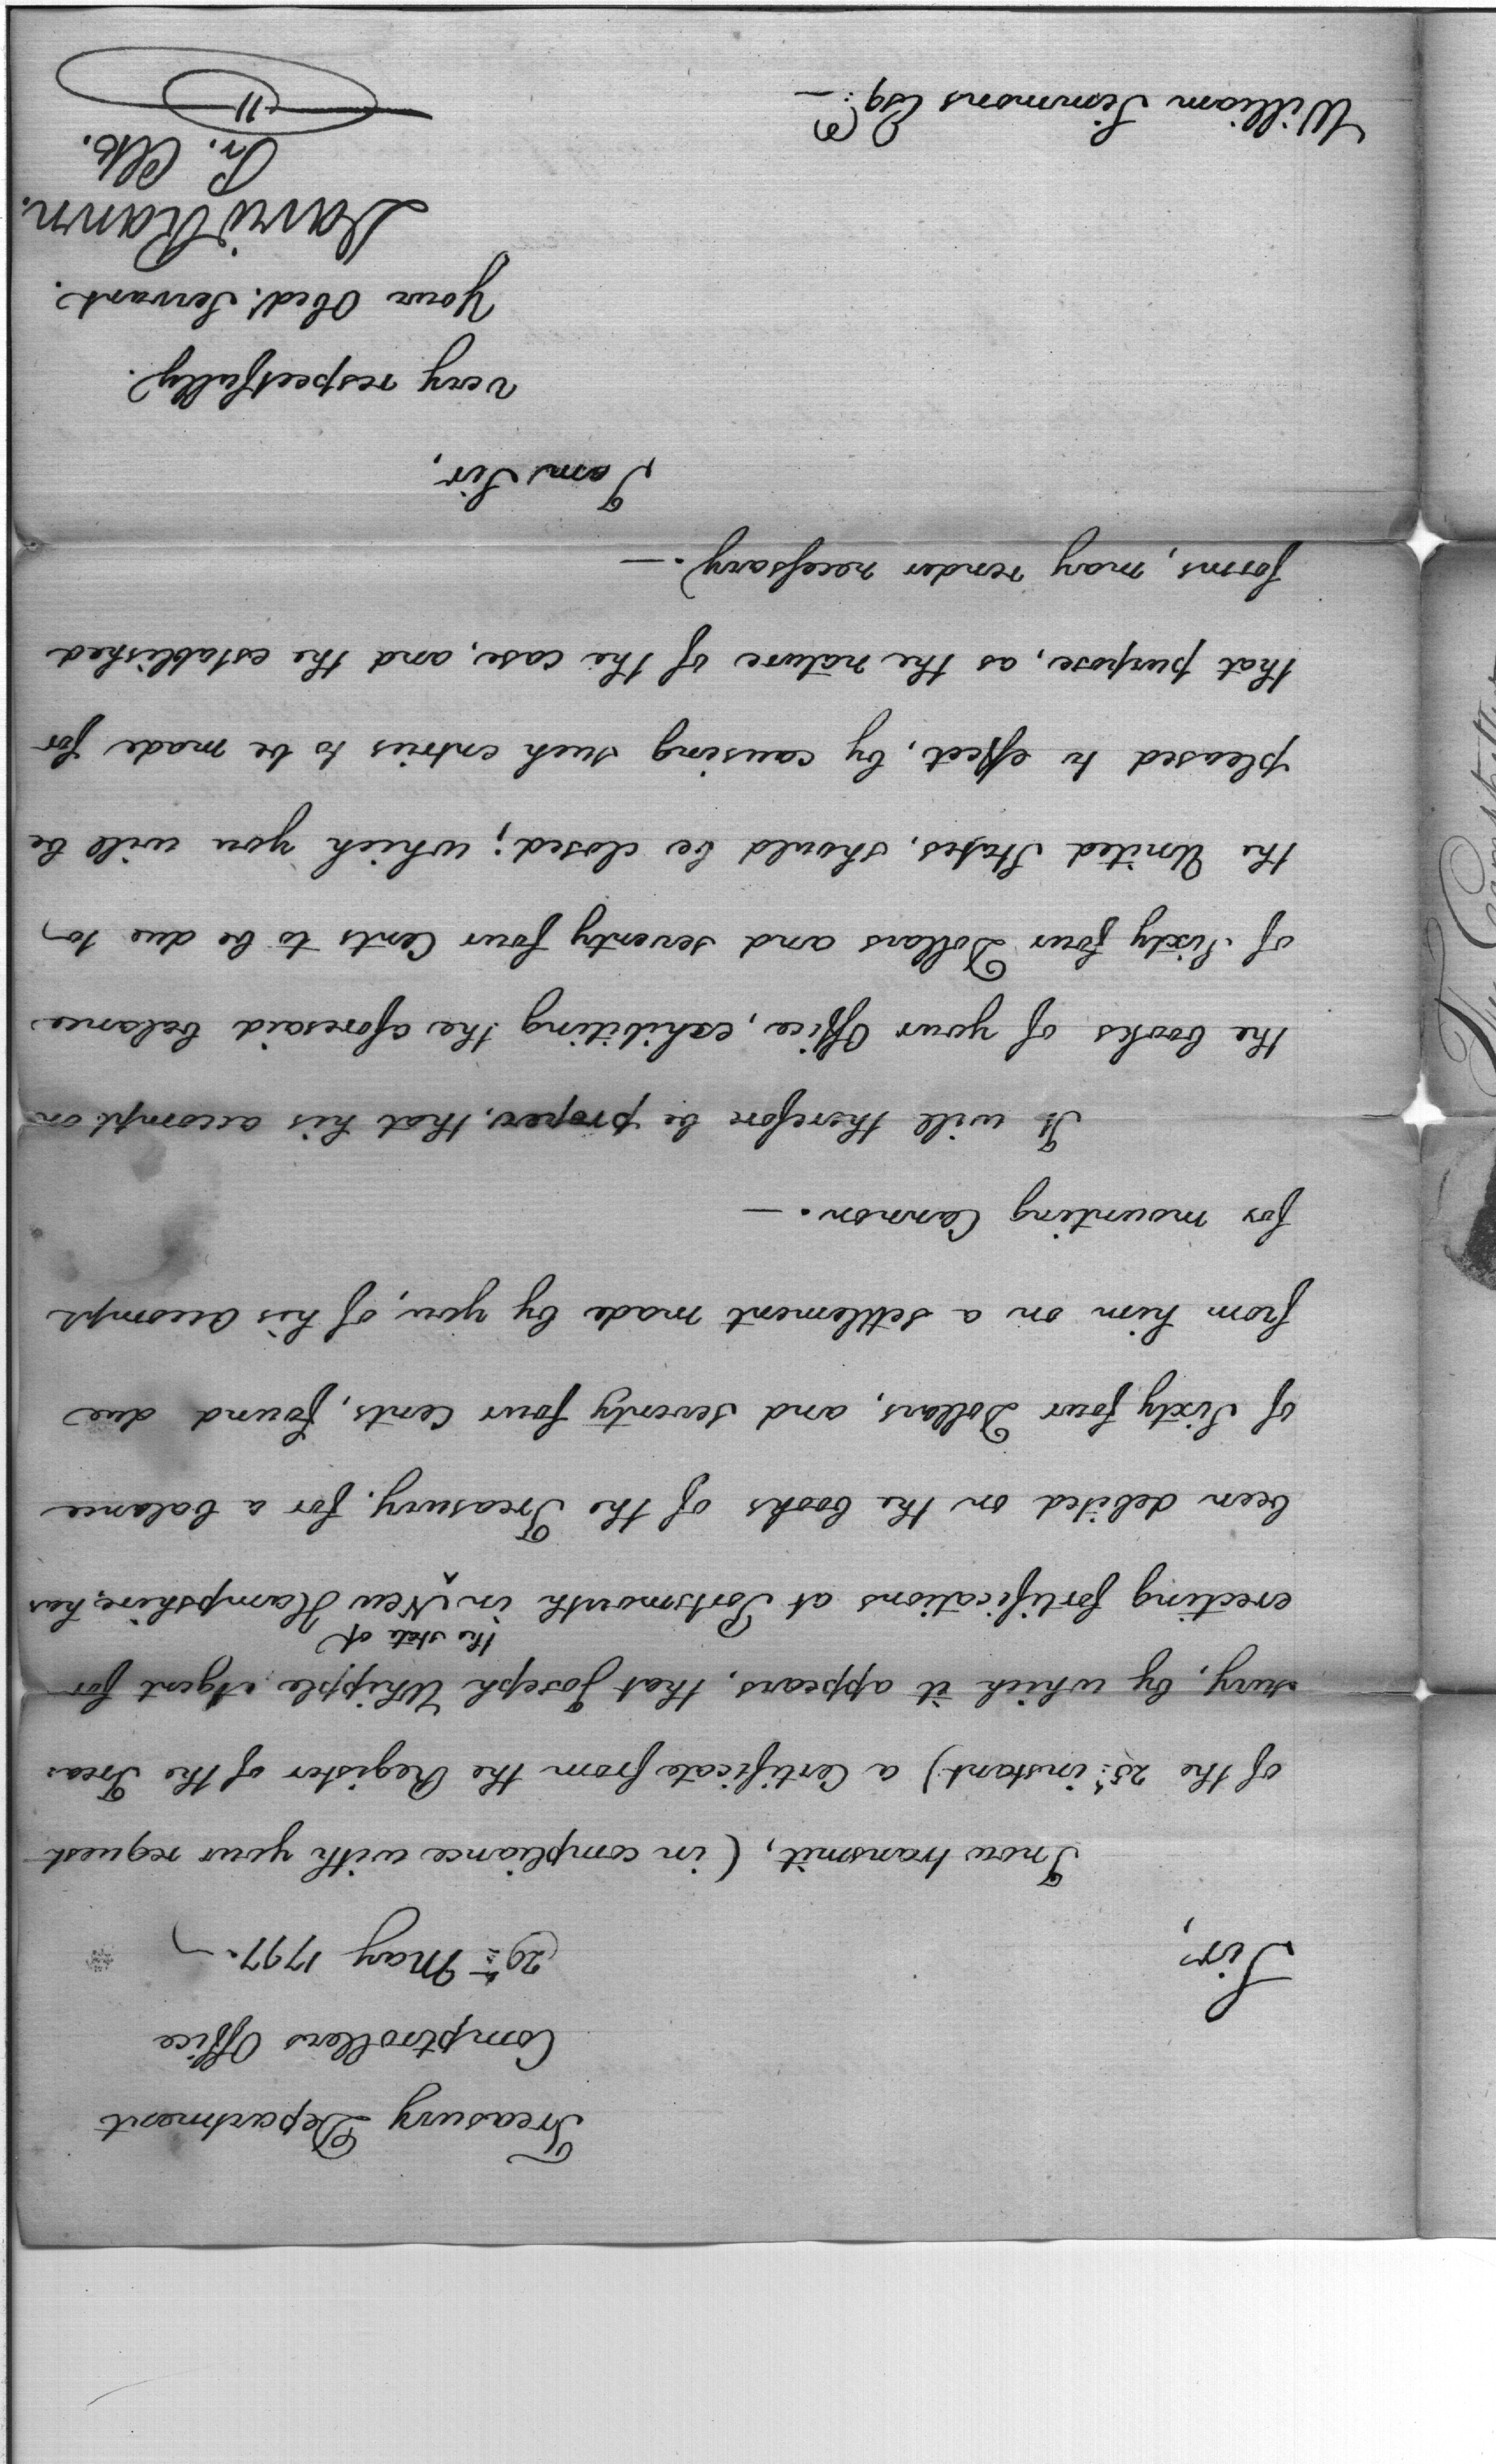 Treasury Department
Comptrollers Office
29th May 1797.
Sir,
I now transmit, (in compliance with your request
of the 25th instant) a Certificate from the Register of the Trea
sury, by which it appears, that Joseph Whipple Agent for
the state of
erecting fortifications at Portsmouth in ^ New Hampshire, has
been debited on the books of the Treasury, for a balance
of Sixty four Dollars, and seventy four Cents, found due
from him on a settlement made by you, of his accompt
for mounting Cannon. —
It will therefore be proper, that his accompt on
the books of your Office, exhibiting the aforesaid balance
of Sixty four Dollars and seventy four Cents to be due to
the United States, should be closed; which you will be
pleased to effect, by causing such entries to be made for
that purpose, as the nature of the case, and the established
forms, may render necessary. —
I am Sir,
very respectfully.
Your Obedt. Servant.
David Rawn.
Pr. Clk.
William Simmons Esq: —